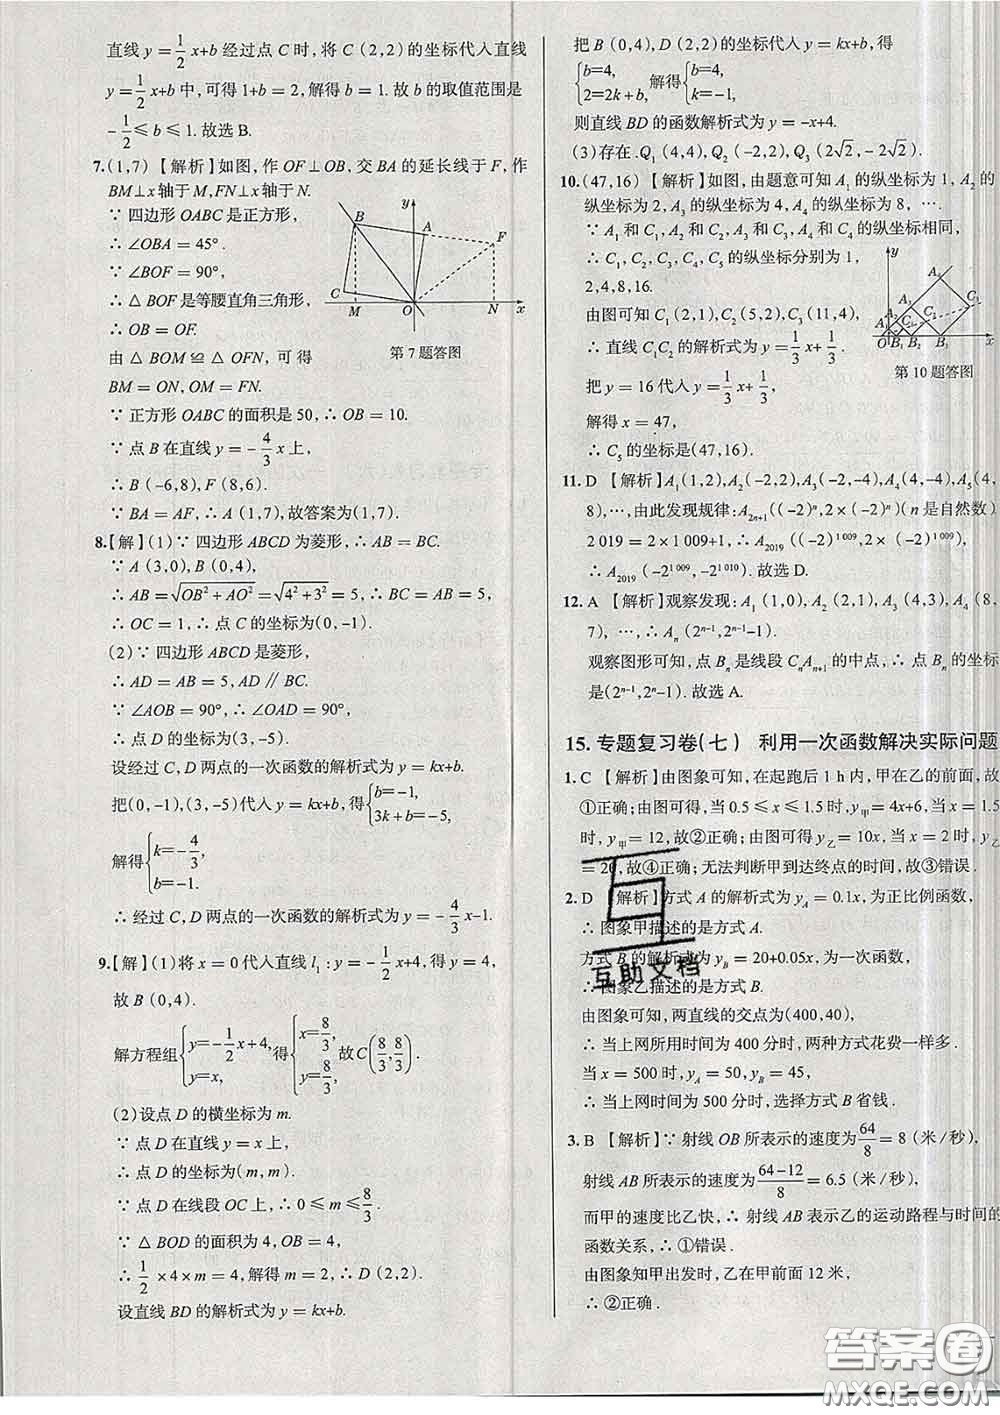 直线 y=1/2x+b 经过点 C 时,将 C(2,2)的坐标代入直线
y=1/2x+b 中,可得 1+b=2,解得 b=1.故 b 的取值范围是
-1/2≤b≤1.故选 B.
7.(1,7) 【解析】如图,作 OF⊥OB,交 BA 的延长线于 F,作
BM⊥x 轴于 M,FN⊥x 轴于 N.
∵ 四边形 OABC 是正方形,
∴ ∠OBA=45°.
∵ ∠BOF=90°,
∴ △BOF 是等腰直角三角形,
∴ OB=OF.
由 △BOM≌△OFN,可得
BM=ON,OM=FN.
B
y
A
F
C
M
O
N
x
第 7 题答图
∵ 正方形 OABC 的面积是 50,∴ OB=10.
∵ 点 B 在直线 y=-4/3x 上,
∴ B(-6,8),F(8,6).
∵ BA=AF,∴ A(1,7),故答案为(1,7).
8.【解】(1)∵ 四边形 ABCD 为菱形,∴ AB=BC.
∵ A(3,0),B(0,4),
∴ AB=√(OB²+AO²)=√(4²+3²)=5,∴ BC=AB=5,
∴ OC=1,∴ 点 C 的坐标为(0,-1).
(2)∵ 四边形 ABCD 是菱形,
∴ AD=AB=5,AD∥BC.
∵ ∠AOB=90°,∴ ∠OAD=90°,
∴ D(3,-5).
设经过 C,D 两点的一次函数的解析式为 y=kx+b.
把(0,-1),(3,-5)代入 y=kx+b,得{b=-1, 3k+b=-5,
解得{k=-4/3, b=-1.
∴ 经过 C,D 两点的一次函数的解析式为 y=-4/3x-1.
9.【解】(1)将 x=0 代入直线 l₁:y=-1/2x+4,得 y=4,
故 B(0,4).
解方程组{y=-1/2x+4, y=x,得{x=8/3, y=8/3,故 C(8/3,8/3).
(2)设点 D 的横坐标为 m.
∵ 点 D 在直线 y=x 上,
∴ 点 D 的坐标为(m,m).
∵ 点 D 在线段 OC 上,∴ 0≤m≤8/3.
∵ △BOD 的面积为 4,OB=4,
∴ 1/2×4×m=4,解得 m=2,∴ D(2,2).
设直线 BD 的解析式为 y=kx+b.
把 B(0,4),D(2,2)的坐标代入 y=kx+b,得
{b=4, 2=2k+b,解得{b=4, k=-1,
则直线 BD 的函数解析式为 y=-x+4.
(3)存在.Q₁(4,4),Q₂(-2,2),Q₃(2√2,-2√2).
10.(47,16)【解析】如图,由题意可知 A₁的纵坐标为 1,A₂的
纵坐标为 2,A₃的纵坐标为 4,A₄的纵坐标为 8,….
∵ A₁和 C₁,A₂和 C₂,A₃和 C₃,A₄和 C₄的纵坐标相同,
∴ C₁,C₂,C₃,C₄,C₅的纵坐标分别为 1,
2,4,8,16.
由图可知 C₁(2,1),C₂(5,2),C₃(11,4),
∴ 直线 C₁C₂的解析式为 y=1/3x+1/3.
把 y=16 代入 y=1/3x+1/3,
解得 x=47,
∴ C₅的坐标是(47,16).
y
A₃
A₂
C₂
C₃
O
B₁
B₂
B₃
x
第 10 题答图
11. D 【解析】A₁(1,2),A₂(-2,2),A₃(-2,-4),A₄(4,-4),A₅(4,
8),…,由此发现规律:A₂ₙ₊₁((-2)ⁿ,2×(-2)ⁿ)(n 是自然数)
2 019=2×1 009+1,∴ A₂₀₁₉((-2)^1 009,2×(-2)^1 009),
∴ A₂₀₁₉(-2^1 009,-2^1 010).故选 D.
12. A 【解析】观察发现:A₁(1,0),A₂(2,1),A₃(4,3),A₄(8,
7),…,∴ Aₙ(2ⁿ⁻¹,2ⁿ⁻¹-1).
观察图形可知,点 Bₙ是线段 CₙAₙ₊₁的中点,∴ 点 Bₙ的坐标
是(2ⁿ⁻¹,2ⁿ-1).故选 A.
15. 专题复习卷(七) 利用一次函数解决实际问题
1. C 【解析】由图象可知,在起跑后 1 h 内,甲在乙的前面,故
①正确;由图象可得,当 0.5≤x≤1.5 时,y甲=4x+6,当 x=1.5
时,y甲=12,故②正确;由图可得 y乙=10x,当 x=2 时,y乙
=20,故④正确;无法判断甲到达终点的时间,故③错误.
2. D 【解析】方式 A 的解析式为 y_A=0.1x,为正比例函数,
∴ 图象甲描述的是方式 A.
方式 B 的解析式为 y_B=20+0.05x,为一次函数,
∴ 图象乙描述的是方式 B.
由图象可知,两直线的交点为(400,40),
∴ 当上网所用时间为 400 分时,两种方式花费一样多.
当 x=500 时,y_A=50,y_B=45,
∴ 当上网时间为 500 分时,选择方式 B 省钱.
3. B 【解析】∵ 射线 OB 所表示的速度为64/8=8(米/秒),
射线 AB 所表示的速度为(64-12)/8=6.5(米/秒),
而甲的速度比乙快,∴ 射线 AB 表示乙的运动路程与时间的
函数关系,∴ ①错误.
由图象知甲出发时,乙在甲前面 12 米,
∴ ②正确.
互助文档
答案圈
MXQE.COM